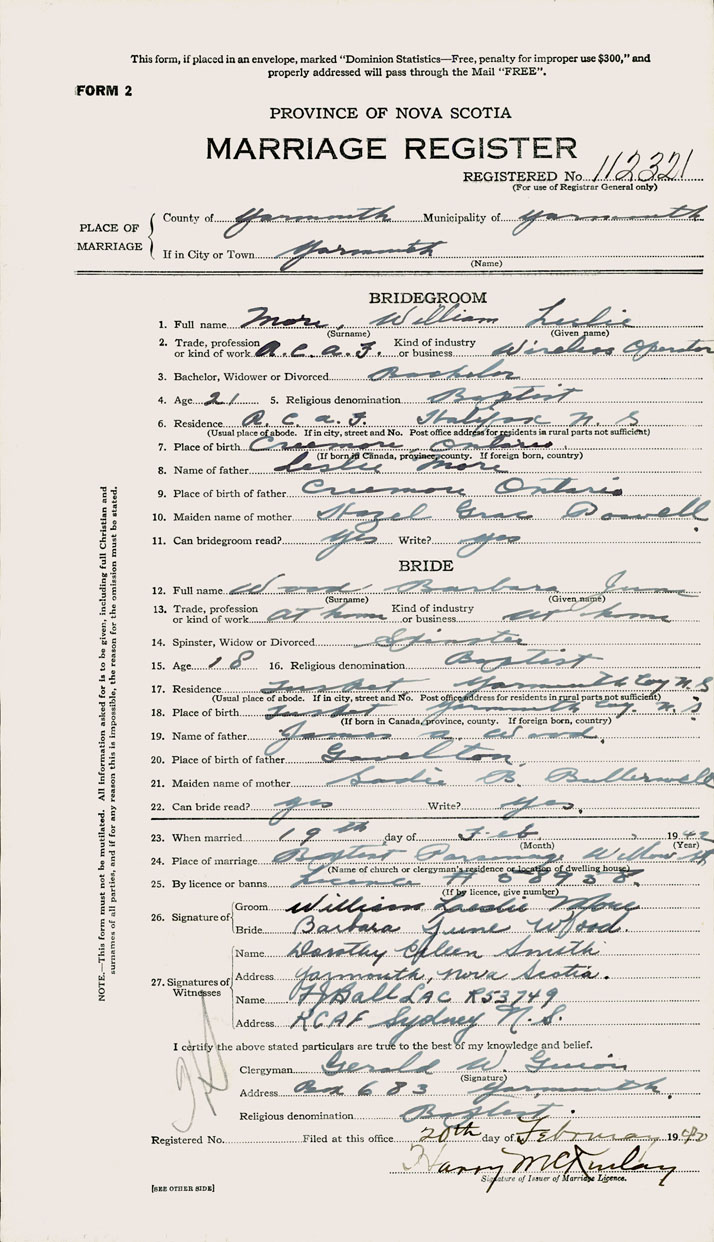 This form, if placed in an envelope, marked "Dominion Statistics—Free, penalty for improper use $300," and
properly addressed will pass through the Mail "FREE".
FORM 2
PROVINCE OF NOVA SCOTIA
MARRIAGE REGISTER
REGISTERED No. 112321
(For use of Registrar General only)
PLACE OF MARRIAGE
County of Yarmouth Municipality of Yarmouth
If in City or Town Yarmouth
(Name)
BRIDEGROOM
1. Full name More, William Leslie
(Surname) (Given name)
2. Trade, profession or kind of work R.C.A.F. Kind of industry or business Wireless Operator
3. Bachelor, Widower or Divorced Bachelor
4. Age 21 5. Religious denomination Baptist
6. Residence R.C.A.F. Halifax N.S
(Usual place of abode. If in city, street and No. Post office address for residents in rural parts not sufficient)
7. Place of birth Creemore, Ontario
(If born in Canada, province, county. If foreign born, country)
8. Name of father Leslie More
9. Place of birth of father Creemore Ontario
10. Maiden name of mother Hazel Grac Powell
11. Can bridegroom read? yes Write? yes
BRIDE
12. Full name Wood Barbara June
(Surname) (Given name)
13. Trade, profession or kind of work at home Kind of industry or business at home
14. Spinster, Widow or Divorced Spinster
15. Age 18 16. Religious denomination Baptist
17. Residence Tusket Yarmouth Coy N.S
(Usual place of abode. If in city, street and No. Post office address for residents in rural parts not sufficient)
18. Place of birth Tusket Yarmouth Coy. N.S
(If born in Canada, province, county. If foreign born, country)
19. Name of father James A. Wood.
20. Place of birth of father Gavelton.
21. Maiden name of mother Sadie B. Butterwell
22. Can bride read? yes Write? yes.
23. When married 19th day of Feb. 1942
(Month) (Year)
24. Place of marriage Baptist Parsonage
(Name of church or clergyman's residence or location of dwelling house)
25. By licence or banns Licence
(If by licence, give number)
26. Signature of
Groom William Leslie More
Bride Barbara June Wood.
27. Signatures of Witnesses
Name Dorothy Eileen Smith
Address Yarmouth, Nova Scotia.
Name Ball LAC R53749
Address RCAF Sydney N.S.
I certify the above stated particulars are true to the best of my knowledge and belief.
Clergyman Gerald W. Guiou
(Signature)
Address Box 683 Yarmouth.
Religious denomination Baptist.
Registered No. Filed at this office 20th day of February 1942
Harry McKinlay
Signature of Issuer of Marriage Licence.
[SEE OTHER SIDE]
NOTE.—This form must not be mutilated. All information asked for is to be given, including full Christian and
surnames of all parties, and if for any reason this is impossible, the reason for the omission must be stated.